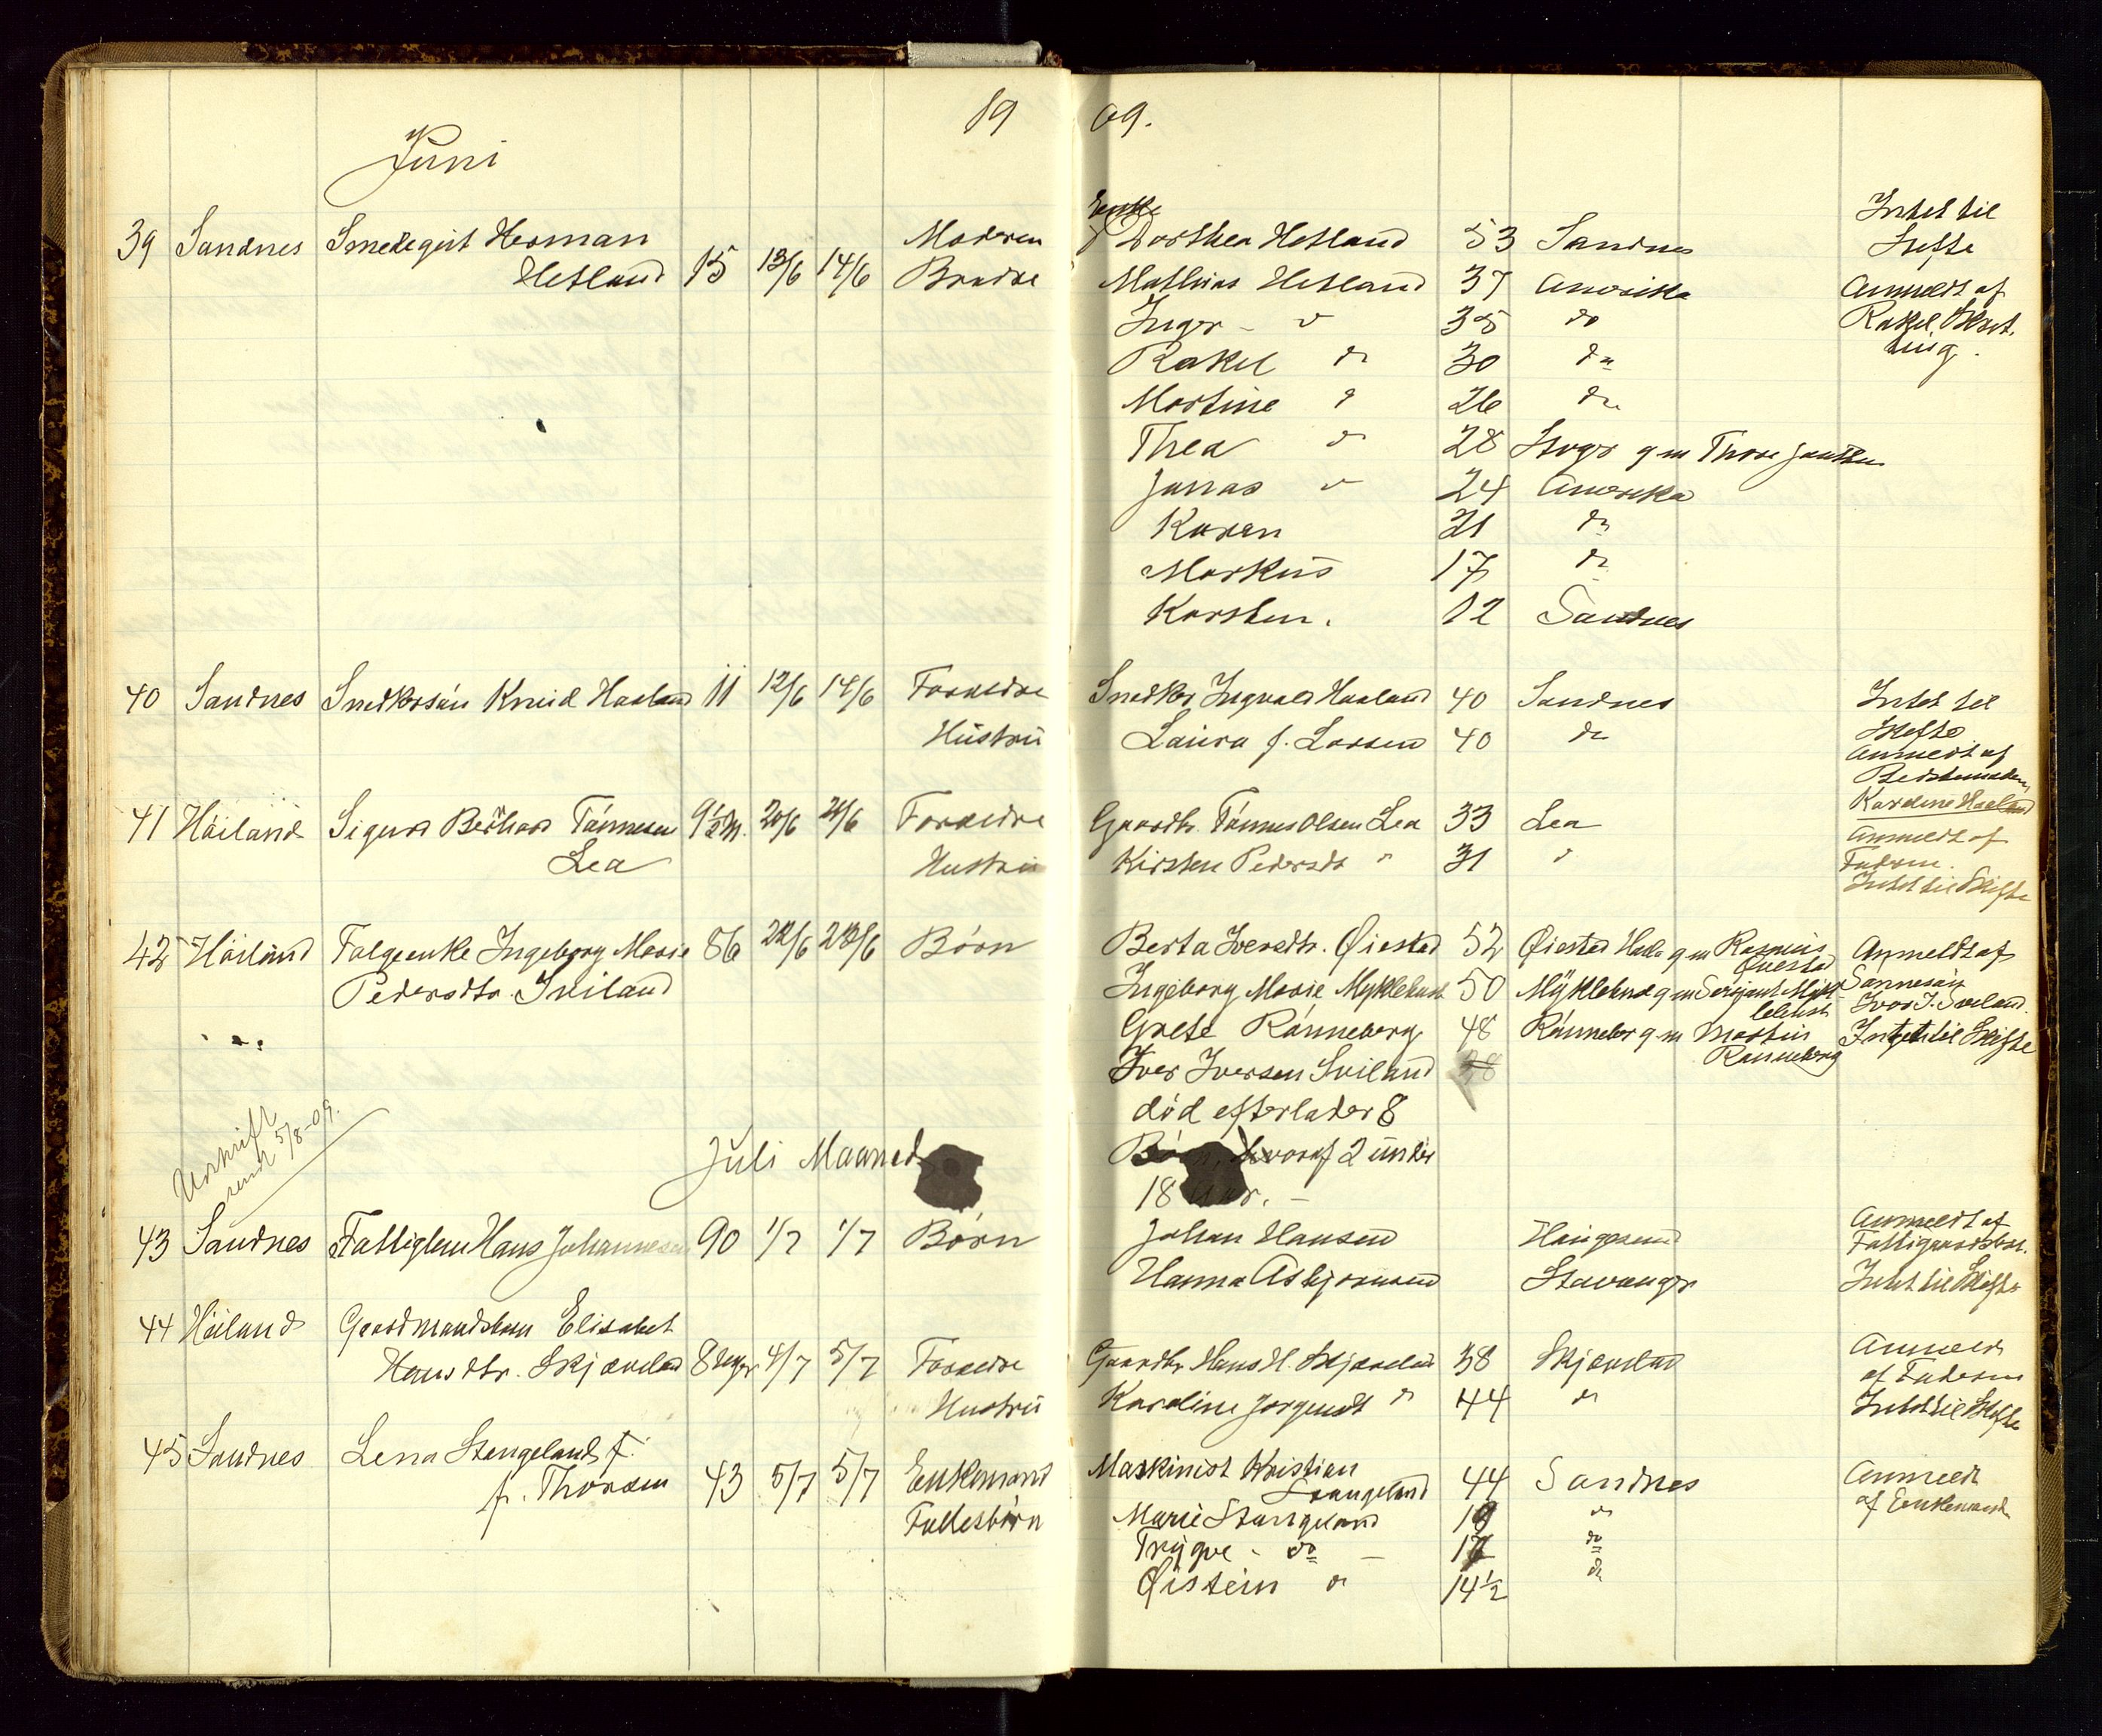 19 09.
Juni
39 Sandnes Smedegut Herman Hetland 15 13/6 14/6 Moderen Brødre
Enke Dorthea Hetland 53 Sandnes Intet til Skifte
Mathias Hetland 37 Amerika Anmeldt af
Inger - do 35 do Rakel
Rakel do 30 do
Martine do 26 do
Thea do 28 Stvgr g m Thore
Jonas do 24 Amerika
Karen 21 do
Markus 17 do
Karsten. 12 Sandnes
40 Sandnes Snedkersøn Knud Haaland 11 12/6 14/6 Forældre
Snedker Ingvald Haaland 40 Sandnes Intet til
Hustru Laura f. Larsen 40 do Skifte
Anmeldt af
Bedstemoderen
Karoline Haaland
41 Höiland Sigurd Berthas Tönnesen 9½ M. 20/6 21/6 Forældre
Lea Hustru
Gaardbr. Tönnes Olsen Lea 33 Lea Anmeldt af
Kirsten Pedersdt " 31 " Faderen.
Intet til Skifte
42 Höiland Folgeenke Ingeborg Marie 86 22/6 28/6 Börn
Pedersdtr. Sviland
Berta Iversdtr. Øiestad 52 Øiestad g m Rasmus Øiestad Anmeldt af
Ingeborg Marie Myklebust 50 Myklebust g m Sersjant Myklebust Sønnesøn
Iver I. Sviland.
Grete Rönneberg 48 Rönneberg g m Martin Rönneberg Intet til Skifte
Iver Iversen Sviland 38
död efterlader 8
Börn, hvoraf 2 under
18 Aar. -
Utskrift
send 5/8-09.
Juli Maaned
43 Sandnes Fattiglem Hans Johannesen 90 1/7 1/7 Börn
Johan Hansen Haugesund Anmeldt af
Fattiggaardsbst.
Hanna Asbjørnsen Stavanger Intet til Skifte
44 Höiland Gaardmandsbarn Elisabet
Hansdtr. Skjæveland 8 Uger 4/7 5/7 Forældre
Hustru
Gaardbr. Hans H. Skjæveland 38 Skjæveland Anmeldt
af Faderen
Karoline Jørgensdt " 44 " Intet til Skifte
45 Sandnes Lena Stangeland f.
f. Thorsen 43 5/7 5/7 Enkemand
Fællesbörn
Maskinist Kristian
Stangeland 44 Sandnes Anmeldt
af Enkemanden
Marie Stangeland 19 do
Trygve - do - 17 do
Øistein do 14½ do